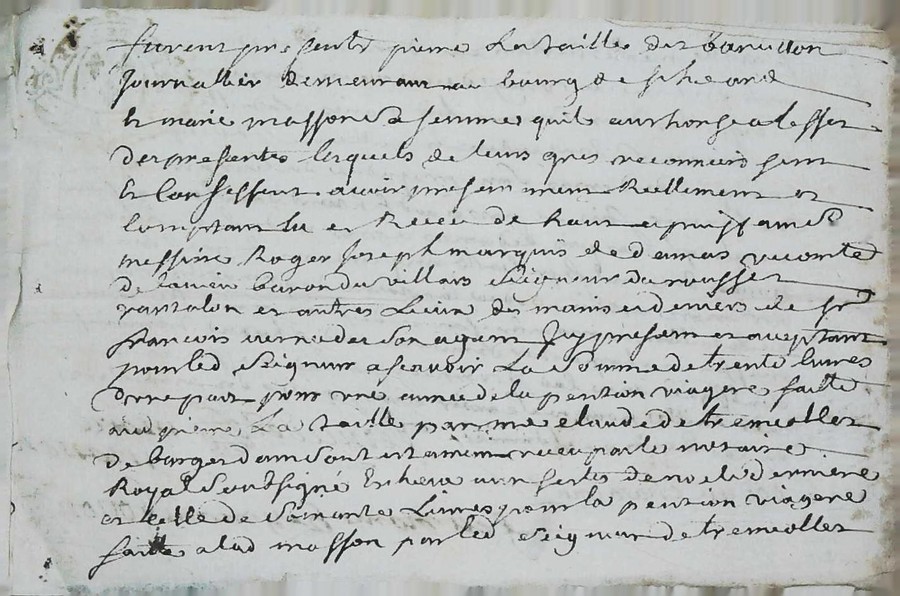 furent presents pierre Lataille dit barutton
journallier demeurant au bourg de st heand
Et marie masson sa femme quil authorise a leffet
des presentes lesquels de leurs gres reconnoissent
Et Confessent avoir presentement Reellement et
Comptant Eu et Receu de haut et puissant
messire Roger Joseph marquis de damas vicomte
de lavieu baron du villars Seigneur du rousset
et autres Lieux des mains et deniers de sr
françois son agent Icy present et acceptant
pour led Seigneur a scavoir La Somme de trente livres
dune part pour une année de la pention viagere faitte
aud pierre La taille par me claude de tremolles
de barges dans Son testament receu par le notaire
Royal Soubsigné Echeue aux festes de noel derniere
et Celle de Soixante Livres pour la pention viagere
faitte a lad masson par led Seigneur de tremolles